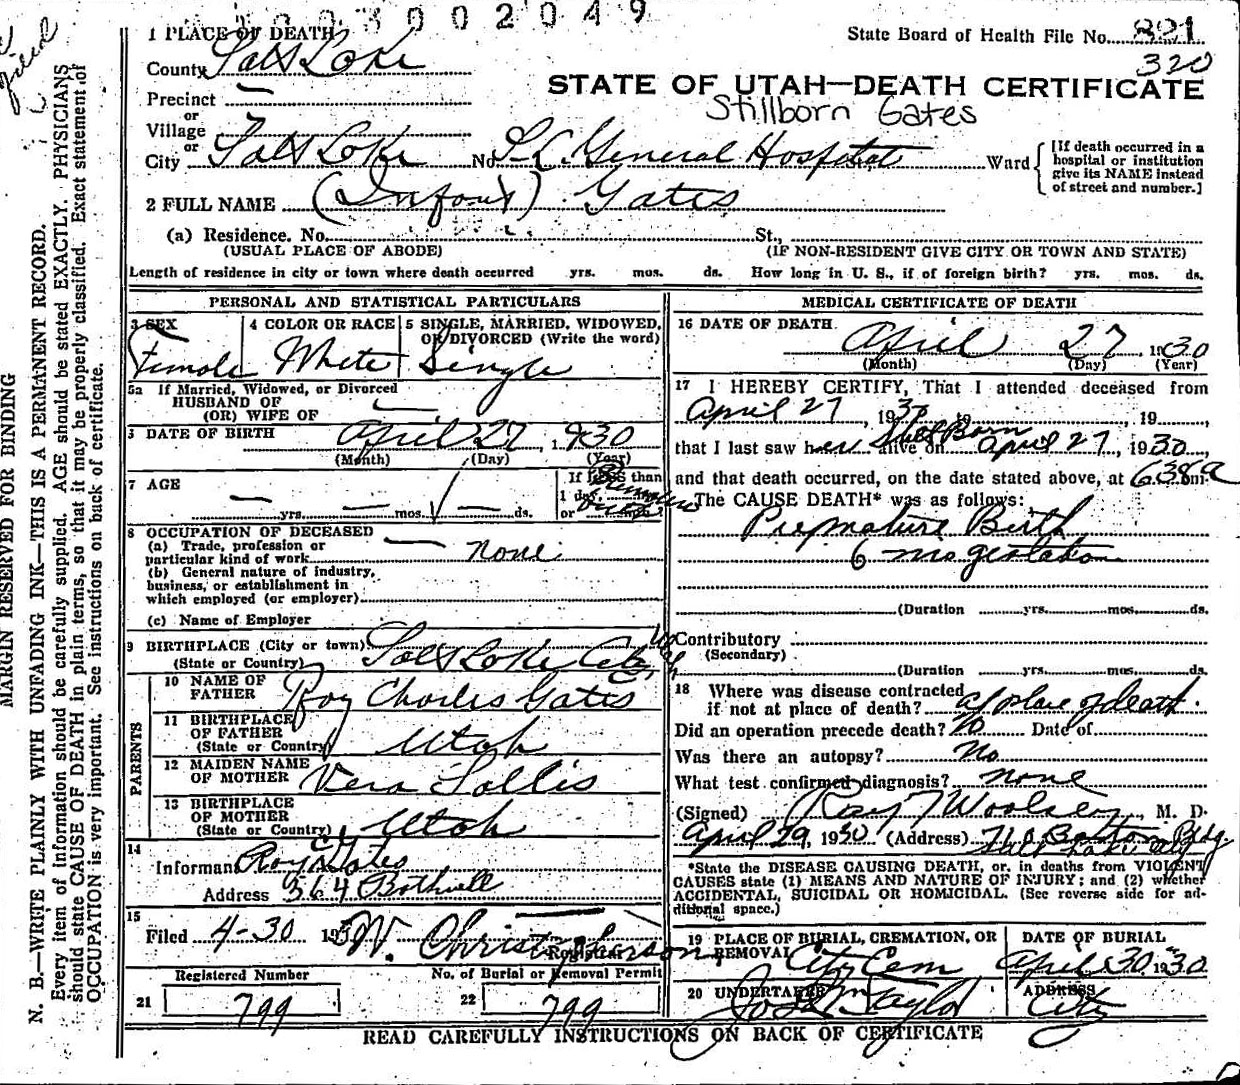 1 0 0 3 0 0 2 0 4 9
1 PLACE OF DEATH
State Board of Health File No. 821
County Salt Lake
320
STATE OF UTAH—DEATH CERTIFICATE
Precinct —
Stillborn Gates
or
Village
or
City Salt Lake No. S.L. General Hospital Ward
[If death occurred in a hospital or institution give its NAME instead of street and number.]
2 FULL NAME (Infant) Gates
(a) Residence. No. St.,
(USUAL PLACE OF ABODE) (IF NON-RESIDENT GIVE CITY OR TOWN AND STATE)
Length of residence in city or town where death occurred yrs. mos. ds. How long in U. S., if of foreign birth? yrs. mos. ds.
PERSONAL AND STATISTICAL PARTICULARS
3 SEX
Female
4 COLOR OR RACE
White
5 SINGLE, MARRIED, WIDOWED,
OR DIVORCED (Write the word)
Single
5a If Married, Widowed, or Divorced
HUSBAND OF
(OR) WIFE OF —
DATE OF BIRTH April 27 1930
(Month) (Day) (Year)
7 AGE
If less than
1 day
or
— yrs. — mos. — ds.
8 OCCUPATION OF DECEASED
(a) Trade, profession or
particular kind of work — none
(b) General nature of industry,
business, or establishment in
which employed (or employer)
(c) Name of Employer
9 BIRTHPLACE (City or town) Salt Lake City Utah
(State or Country)
PARENTS
10 NAME OF
FATHER Roy Charles Gates
11 BIRTHPLACE
OF FATHER
(State or Country) Utah
12 MAIDEN NAME
OF MOTHER Vera Sallis
13 BIRTHPLACE
OF MOTHER
(State or Country) Utah
14
Informant Roy C Gates
Address 364 Bothwell
15
Filed 4-30 1930 W. Christopherson
Registrar
Registered Number
21 799
No. of Burial or Removal Permit
22 799
MEDICAL CERTIFICATE OF DEATH
16 DATE OF DEATH
April 27, 1930
(Month) (Day) (Year)
17 I HEREBY CERTIFY, That I attended deceased from
April 27, 1930 to , 19
that I last saw her alive on Still Born April 27, 1930,
and that death occurred, on the date stated above, at 6:38 a m.
The CAUSE DEATH* was as follows:
Premature Birth
6 mos gestation
(Duration yrs. mos. ds.
Contributory
(Secondary)
(Duration yrs. mos. ds.
18 Where was disease contracted
if not at place of death? at place of death.
Did an operation precede death? No Date of
Was there an autopsy? No
What test confirmed diagnosis? none
(Signed) Ray T Woolsey, M. D.
April 29, 1930 (Address) 710 Boston Bldg
Salt Lake City
*State the DISEASE CAUSING DEATH, or, in deaths from VIOLENT
CAUSES state (1) MEANS AND NATURE OF INJURY; and (2) whether
ACCIDENTAL, SUICIDAL OR HOMICIDAL. (See reverse side for ad-
ditional space.)
19 PLACE OF BURIAL, CREMATION, OR
REMOVAL City Cem
DATE OF BURIAL
April 30 1930
20 UNDERTAKER
Jos. Wm Taylor
ADDRESS
City
READ CAREFULLY INSTRUCTIONS ON BACK OF CERTIFICATE
MARGIN RESERVED FOR BINDING
N. B.—WRITE PLAINLY WITH UNFADING INK—THIS IS A PERMANENT RECORD.
Every item of information should be carefully supplied. AGE should be stated EXACTLY. PHYSICIANS
should state CAUSE OF DEATH in plain terms, so that it may be properly classified. Exact statement of
OCCUPATION is very important. See instructions on back of certificate.